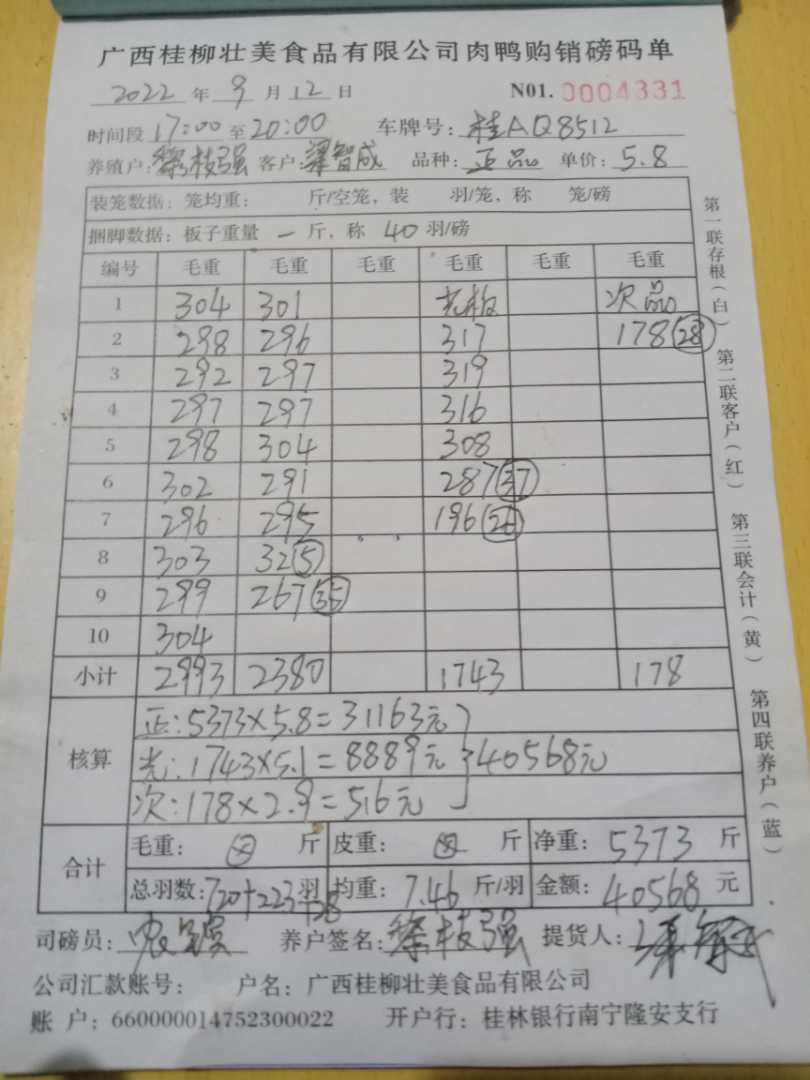 广西桂柳壮美食品有限公司肉鸭购销磅码单
2022 年 9 月 12 日 N01. 0004331
时间段 17:00 至 20:00 车牌号: 桂AQ8512
养殖户: 黎枝强 客户: 梁智成 品种: 正品 单价: 5.8
装笼数据: 笼均重: 斤/空笼, 装 羽/笼, 称 笼/磅
捆脚数据: 板子重量 一 斤, 称 40 羽/磅
编号 毛重 毛重 毛重 毛重 毛重 毛重
1 304 301 光板 次品
2 298 296 317 178 28
3 292 297 319
4 297 297 316
5 298 304 308
6 302 291 287 37
7 296 295 196 26
8 303 32 5
9 299 267 35
10 304
小计 2993 2380 1743 178
核算
正: 5373×5.8=31163元
光: 1743×5.1=8889元 } 40568元
次: 178×2.9=516元
合计
毛重: 斤 皮重: 斤 净重: 5373 斤
总羽数: 720+223+28 羽 均重: 7.46 斤/羽 金额: 40568 元
司磅员: 养户签名: 黎枝强 提货人: 梁智成
公司汇款账号: 户名: 广西桂柳壮美食品有限公司
账 户: 660000014752300022 开户行: 桂林银行南宁隆安支行
第一联存根(白) 第二联客户(红) 第三联会计(黄) 第四联养户(蓝)